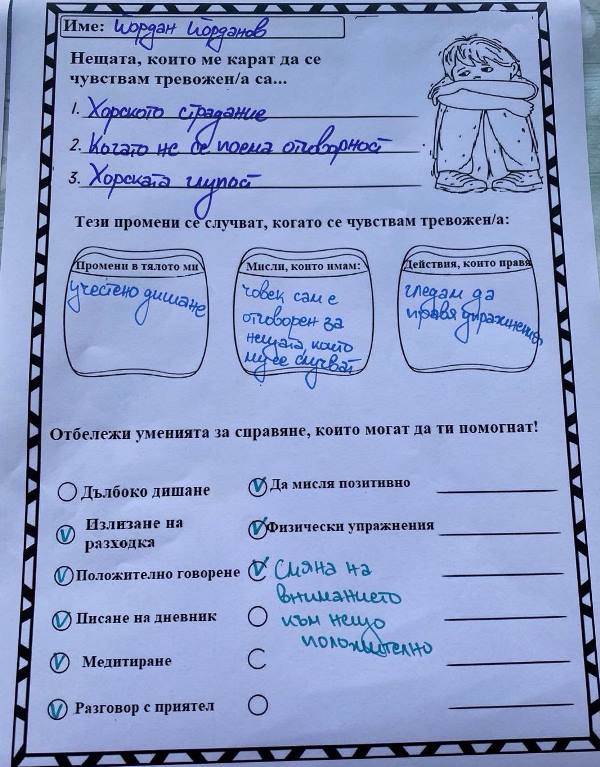 Име: Йордан Йорданов
Нещата, които ме карат да се
чувствам тревожен/а са...
1. Хорското страдание
2. Когато не се поема отговорност
3. Хорската глупост
Тези промени се случват, когато се чувствам тревожен/а:
Промени в тялото ми
учестено дишане
Мисли, които имам:
човек сам е
отговорен за
нещата, които
му се случват
Действия, които правя
гледам да
правя упражнения
Отбележи уменията за справяне, които могат да ти помогнат!
Дълбоко дишане
V Излизане на
разходка
V Положително говорене
V Писане на дневник
V Медитиране
V Разговор с приятел
V Да мисля позитивно
V Физически упражнения
V Смяна на
вниманието
към нещо
положително